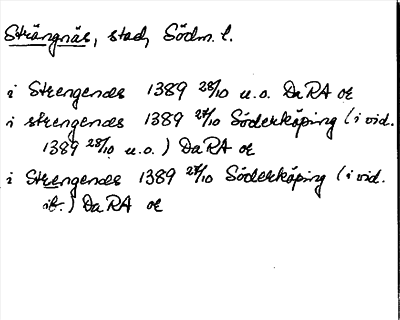 Strängnäs, stad, Södm. l.
i Strengenes 1389 28/10 u.o. DaRA or
i strengenes 1389 27/10 Söderköping (i vid.
1389 28/10 u.o.) DaRA or
i Strengenes 1389 27/10 Söderköping (i vid.
ib.) DaRA or